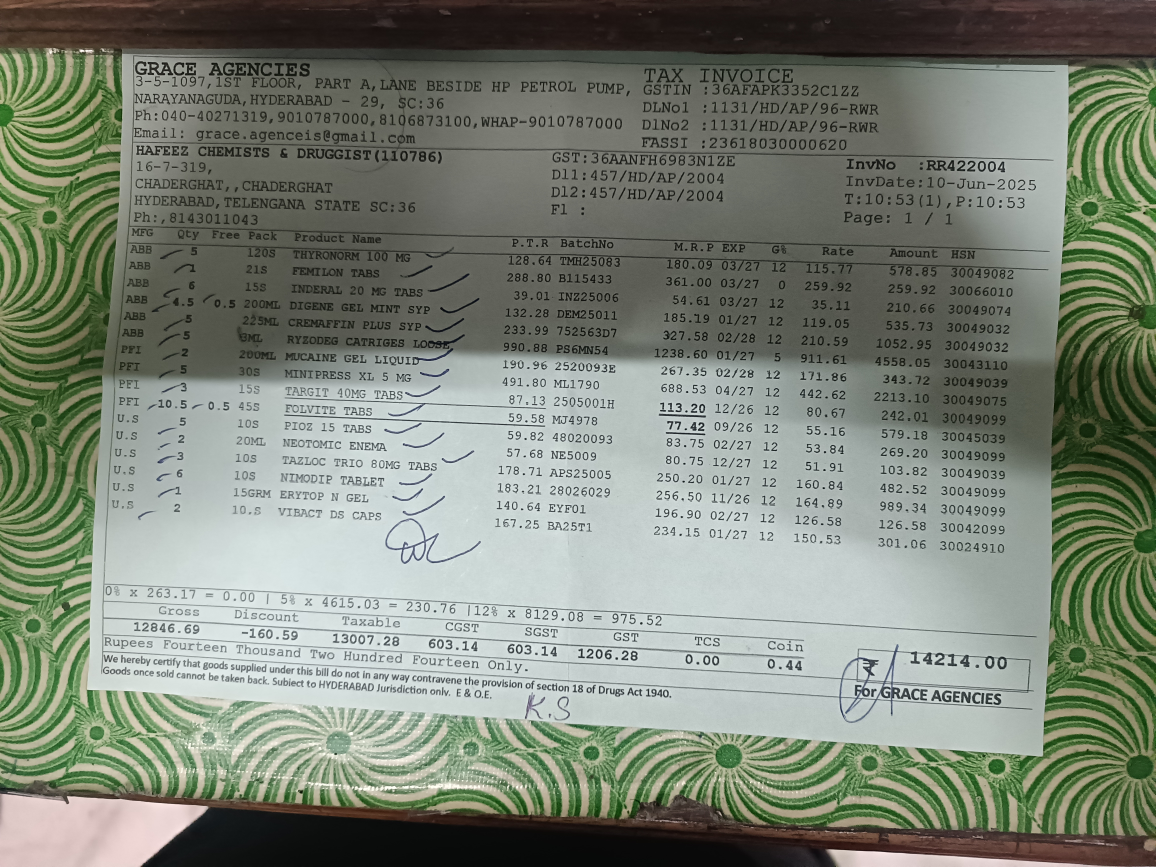 GRACE AGENCIES TAX INVOICE
3-5-1097,1ST FLOOR, PART A,LANE BESIDE HP PETROL PUMP, GSTIN :36AFAPK3352C1ZZ
NARAYANAGUDA,HYDERABAD - 29, SC:36 DLNo1 :1131/HD/AP/96-RWR
Ph:040-40271319,9010787000,8106873100,WHAP-9010787000 DlNo2 :1131/HD/AP/96-RWR
Email: grace.agenceis@gmail.com FASSI :23618030000620
HAFEEZ CHEMISTS & DRUGGIST(110786) GST:36AANFH6983N1ZE InvNo :RR422004
16-7-319, Dl1:457/HD/AP/2004 InvDate:10-Jun-2025
CHADERGHAT,,CHADERGHAT Dl2:457/HD/AP/2004 T:10:53(1),P:10:53
HYDERABAD,TELENGANA STATE SC:36 Fl : Page: 1 / 1
Ph:,8143011043
MFG Qty Free Pack Product Name P.T.R BatchNo M.R.P EXP G% Rate Amount HSN
ABB 5 120S THYRONORM 100 MG 128.64 TMH25083 180.09 03/27 12 115.77 578.85 30049082
ABB 1 21S FEMILON TABS 288.80 B115433 361.00 03/27 0 259.92 259.92 30066010
ABB 6 15S INDERAL 20 MG TABS 39.01 INZ25006 54.61 03/27 12 35.11 210.66 30049074
ABB 4.5 0.5 200ML DIGENE GEL MINT SYP 132.28 DEM25011 185.19 01/27 12 119.05 535.73 30049032
ABB 5 225ML CREMAFFIN PLUS SYP 233.99 752563D7 327.58 02/28 12 210.59 1052.95 30049032
ABB 5 RYZODEG CATRIGES LOOSE 990.88 PS6MN54 1238.60 01/27 5 911.61 4558.05 30043110
PFI 2 200ML MUCAINE GEL LIQUID 190.96 2520093E 267.35 02/28 12 171.86 343.72 30049039
PFI 5 30S MINIPRESS XL 5 MG 491.80 ML1790 688.53 04/27 12 442.62 2213.10 30049075
PFI 3 15S TARGIT 40MG TABS 87.13 2505001H 113.20 12/26 12 80.67 242.01 30049099
PFI 10.5 0.5 45S FOLVITE TABS 59.58 MJ4978 77.42 09/26 12 55.16 579.18 30045039
U.S 5 10S PIOZ 15 TABS 59.82 48020093 83.75 02/27 12 53.84 269.20 30049099
U.S 2 20ML NEOTOMIC ENEMA 57.68 NE5009 80.75 12/27 12 51.91 103.82 30049039
U.S 3 10S TAZLOC TRIO 80MG TABS 178.71 APS25005 250.20 01/27 12 160.84 482.52 30049099
U.S 6 10S NIMODIP TABLET 183.21 28026029 256.50 11/26 12 164.89 989.34 30049099
U.S 1 15GRM ERYTOP N GEL 140.64 EYF01 196.90 02/27 12 126.58 126.58 30042099
U.S 2 10.S VIBACT DS CAPS 167.25 BA25T1 234.15 01/27 12 150.53 301.06 30024910
0% x 263.17 = 0.00 | 5% x 4615.03 = 230.76 |12% x 8129.08 = 975.52
Gross Discount Taxable CGST SGST GST TCS Coin
12846.69 -160.59 13007.28 603.14 603.14 1206.28 0.00 0.44 ₹ 14214.00
Rupees Fourteen Thousand Two Hundred Fourteen Only.
We hereby certify that goods supplied under this bill do not in any way contravene the provision of section 18 of Drugs Act 1940.
Goods once sold cannot be taken back. Subject to HYDERABAD Jurisdiction only. E & O.E. For GRACE AGENCIES
K.S